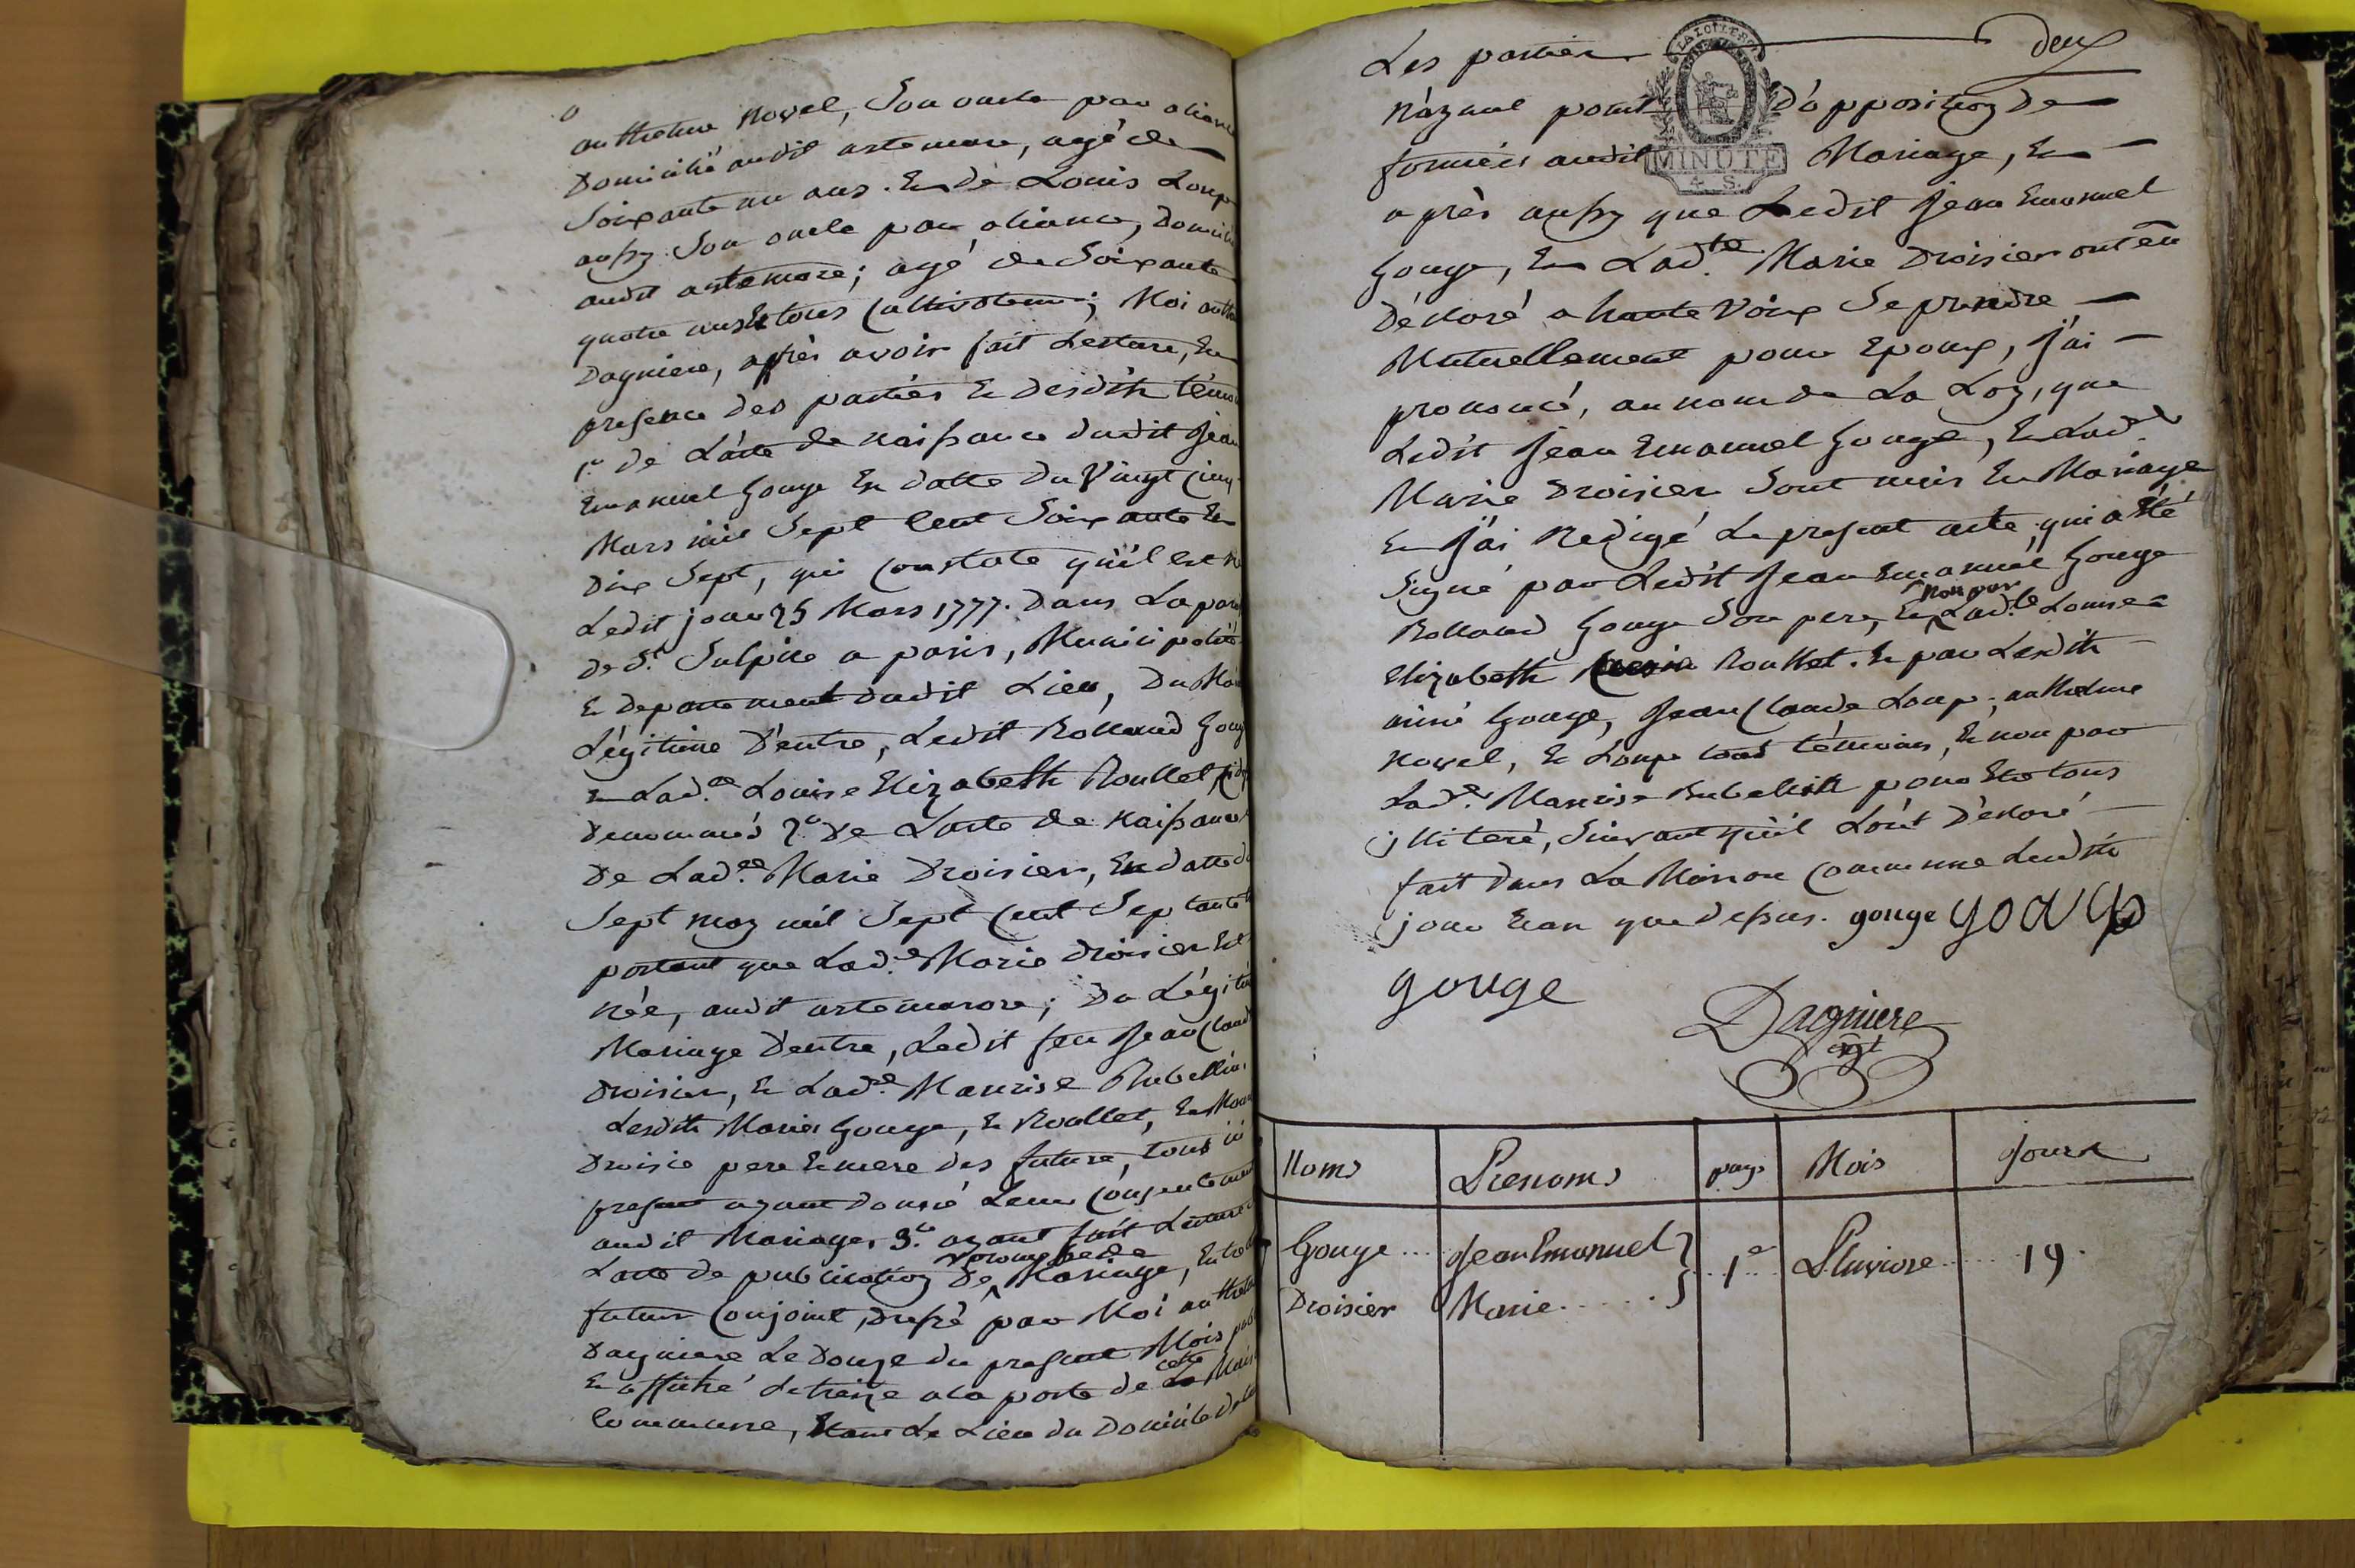 anthelme Novel, Son oncle par alianc
Domicilié audit artemare, agé de
Soixante un ans. Et de Louis Loup
aussy Son oncle par aliance, Domicili
audit artemare; agé de Soixante
quatre ans Et tous Cultivateurs; Moi anth
Dagniere, après avoir fait Lecture, En
presence des parties Et desdits témo
1º de L'acte de naissance dudit Jean
Emanuel Gouge En datte du Vingt Cinq
Mars mil Sept Cent Soixante Et
Dix Sept, qui Constate qu'il est n
Ledit jour 25 Mars 1777. Dans La par
de St Sulpice a paris, Municipalité
Et departement dudit Lieu, Du Ma
Légitime D'entre, Ledit Rolland Goug
Et Lade Louise Elizabeth Roullet
Denommés 2º De L'acte de Naissance
De Lade Marie Droisier, En datte d
Sept may mil Sept Cent Septante
portant que Lade Marie Droisier Est
née, audit artemare; Du Légiti
Mariage D'entre, Ledit feu Jean Claud
Droisier, Et Lade Maurise Rubellin
Lesdits Mariés Gouge, Et Roullet, Et
Droisie pere Et mere des future, tous ici
present ayant donné Leur Consentement
audit Mariage, 3º ayant fait Lecture
promesse de
L'acte de publication De Mariage, Entre
futur Conjoint, dressé par Moi anthel
Dagniere Le Douze du present Mois pub
cette
Et affiché Le treize a la porte de La Mais
Commune, Etant Le Lieu du Domicile D
Les parties
deux
N'ayant point D'opposition De
LA LOI LE ROI
MINUTE
4. S.
formées audit Mariage, Et
après aussy que Ledit Jean Emanuel
Gouge, Et Ladte Marie Droisier ont Eu
Déclaré a haute Voix Se prendre
Mutuellement pour Epoux, J'ai
prononcé, au nom de La Loy, que
Ledit Jean Emanuel Gouge, Et Lade
Marie Droisier Sont unis En Mariage
Et J'ai Redigé Le present acte, qui a Eté
Signé par Ledit Jean Emanuel Gouge
non par
Rolland Gouge Son pere, Et Lade Louise
Elizabeth Roullet. Et par Lesdits
aimé Gouge, Jean Claude Loup, anthelme
Novel, Et Loup tous témoins, Et non par
Lade Maurise Rubellin pour Etre tous
jlliteré, Suivant qu'il L'ont Déclaré
fait Dans La Maison Commune Lesdits
jour Et an que dessus. gouge gouge
gouge
Dagniere
agt
Noms Prenoms page Mois Jours
Gouge ... Jean Emanuel } ... 1e ... Pluviose ... 19.
Droisier Marie ......